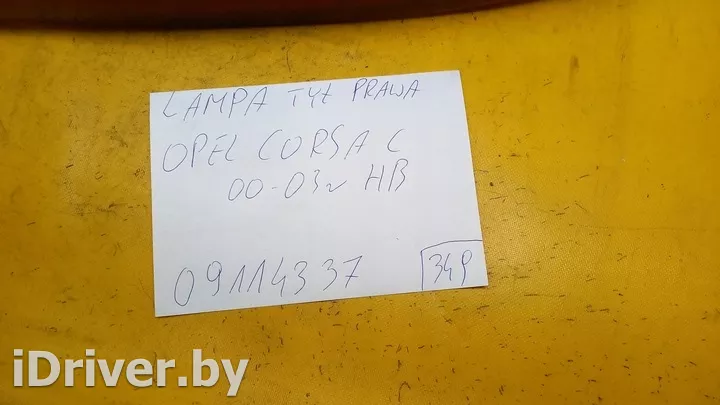 LAMPA TYŁ PRAWA
OPEL CORSA C
00-03r HB
09114337
34P
iDriver.by